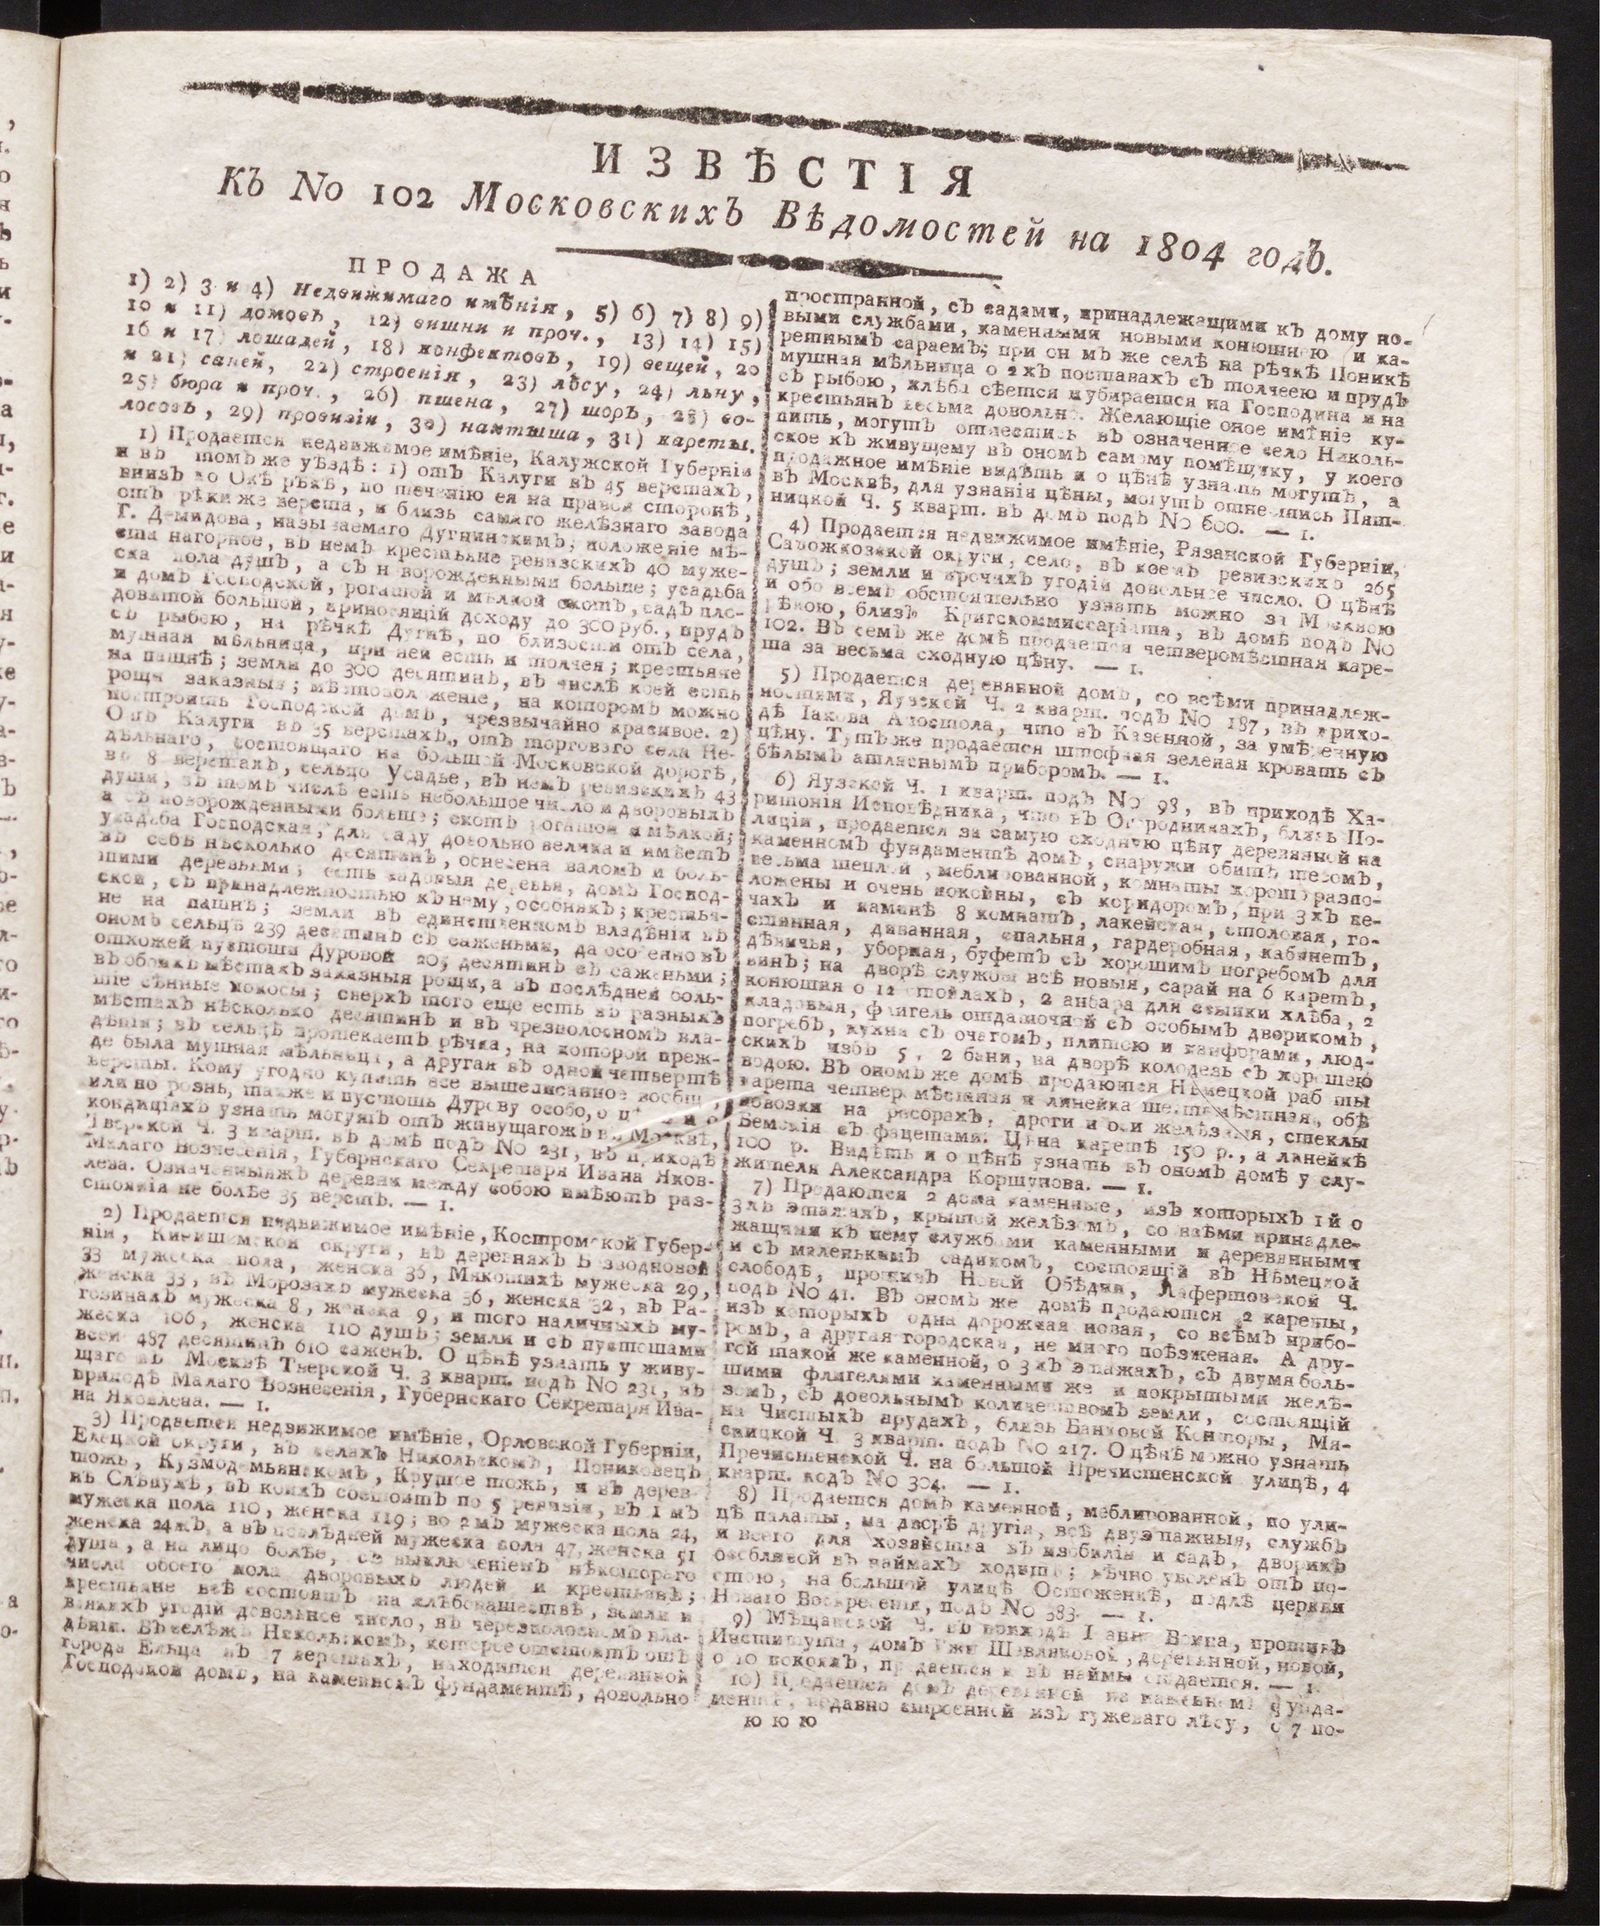 ИЗВѢСТІЯ
Къ No 102 Московскихъ Вѣдомостей на 1804 годъ.
ПРОДАЖА
1) 2) 3 и 4) Недвижимаго имѣнія, 5) 6) 7) 8) 9)
10 и 11) домовъ, 12) вишни и проч., 13) 14) 15)
16 и 17) лошадей, 18) конфектовъ, 19) вещей, 20
и 21) саней, 22) строенія, 23) лѣсу, 24) льну,
25) бюра и проч., 26) пшена, 27) шоръ, 28) во-
лосовъ, 29) провизіи, 30) нахтыша, 31) кареты.
1) Продается недвижимое имѣніе, Калужской Губерніи
и въ томъ же уѣздѣ: 1) отъ Калуги въ 45 верстахъ,
внизъ по Окѣ рѣкѣ, по теченію ея на правой сторонѣ,
отъ рѣки же верста, и близь самаго желѣзнаго завода
Г. Демидова, называемаго Дугнинскимъ; положеніе мѣ-
ста нагорное, въ немъ крестьяне ревизскихъ 40 муже-
ска пола душъ, а съ новорожденными больше; усадьба
и домъ Господской, рогатой и мѣлкой скотъ, садъ пло-
довитой большой, приносящій доходу до 300 руб., прудъ
съ рыбою, на рѣчкѣ Дугнѣ, по близости отъ села,
мушная мѣльница, при ней есть и толчея; крестьяне
на пашнѣ; земли до 300 десятинъ, въ числѣ коей есть
рощи заказныя; мѣстоположеніе, на которомъ можно
построить Господской домъ, чрезвычайно красивое. 2)
Отъ Калуги въ 35 верстахъ, отъ торговаго села Не-
дѣльнаго, состоящаго на большой Московской дорогѣ,
въ 8 верстахъ, сельцо Усадье, въ немъ ревизскихъ 43
души, въ томъ числѣ есть небольшое число и дворовыхъ
а съ новорожденными больше; скотъ рогатой и мѣлкой;
усадьба Господская, для саду довольно велика и имѣетъ
въ себѣ нѣсколько десятинъ, обнесена валомъ и боль-
шими деревьями; есть садовыя деревья, домъ Господ-
ской, съ принадлежностью къ нему, особнякъ; крестья-
не на пашнѣ; земли въ единственномъ владѣніи въ
ономъ сельцѣ 239 десятинъ съ саженьми, да особенно въ
отхожей пустоши Дуровой 205 десятинъ съ саженьми;
въ обоихъ мѣстахъ заказныя рощи, а въ послѣдней боль-
шіе сѣнные покосы; сверхъ того еще есть въ разныхъ
мѣстахъ нѣсколько десятинъ и въ чрезполосномъ вла-
дѣніи; въ сельцѣ протекаетъ рѣчка, на которой преж-
де была мушная мѣльница, а другая въ одной четвертѣ
версты. Кому угодно купить все вышеписанное вообще,
или по рознь, также и пустошь Дурову особо, о цѣнѣ и о
кондиціяхъ узнать могутъ отъ живущагожъ въ Москвѣ,
Тверской Ч. 3 кварт. въ домѣ подъ No 231, въ приходѣ
Малаго Вознесенія, Губернскаго Секретаря Ивана Яков-
лева. Означенныяжъ деревни между собою имѣютъ раз-
стоянія не болѣе 35 верстъ. — 1.
2) Продается недвижимое имѣніе, Костромской Губер-
ніи, Кинешемской округи, въ деревняхъ
33 мужеска пола, женска 36, Мякотихѣ мужеска 29,
женска 33, въ Морозахъ мужеска 36, женска 32, въ Ра-
гозинахъ мужеска 8, женска 9, и того наличныхъ му-
жеска 106, женска 110 душъ; земли и съ пустошами
всей 487 десятинъ 610 саженъ. О цѣнѣ узнать у живу-
щаго въ Москвѣ Тверской Ч. 3 кварт. подъ No 231, въ
приходѣ Малаго Вознесенія, Губернскаго Секретаря Ива-
на Яковлева. — 1.
3) Продается недвижимое имѣніе, Орловской Губерніи,
Елецкой округи, въ селахъ Никольскомъ, Пониковецъ
тожъ, Кузмодемьянскомъ, Крутое тожъ, и въ дерев-
нѣ Слѣпухѣ, въ коихъ состоитъ по 5 ревизіи, въ 1 мъ
мужеска пола 110, женска 119; во 2мъ мужеска пола 24,
женска 24жъ, а въ послѣдней мужеска пола 47, женска 51
душа, а на лицо болѣе, съ выключеніемъ нѣкотораго
числа обоего пола дворовыхъ людей и крестьянъ;
крестьяне всѣ состоятъ на хлѣбопашествѣ, земли и
всякихъ угодій довольное число, въ черезполосномъ вла-
дѣніи. Въ селѣжъ Никольскомъ, которое отстоитъ отъ
города Ельца въ 17 верстахъ, находится деревянной
Господской домъ, на каменномъ фундаментѣ, довольно
пространной, съ садами, принадлежащими къ дому но-
выми службами, каменными новыми конюшнею и ка-
ретнымъ сараемъ; при ономъ же селѣ на рѣчкѣ Поникѣ
мушная мѣльница о 2хъ поставахъ съ толчеею и прудъ
съ рыбою, хлѣба сѣется и убирается на Господина и на
крестьянъ весьма довольно. Желающіе оное имѣніе ку-
пить, могутъ отнестись въ означенное село Николь-
ское къ живущему въ ономъ самому помѣщику, у коего
продажное имѣніе видѣть и о цѣнѣ узнать могутъ, а
въ Москвѣ, для узнанія цѣны, могутъ отнестись Пят-
ницкой Ч. 5 кварт. въ домъ подъ No 600. — 1.
4) Продается недвижимое имѣніе, Рязанской Губерніи,
Сапожковской округи, село, въ коемъ ревизскихъ 265
душъ; земли и прочихъ угодій довольное число. О цѣнѣ
и обо всемъ обстоятельно узнать можно за Москвою
рѣкою, близь Кригскоммиссаріата, въ домѣ подъ No
102. Въ семъ же домѣ продается четверомѣстная каре-
та за весьма сходную цѣну. — 1.
5) Продается деревянной домъ, со всѣми принадлеж-
ностями, Яузской Ч. 2 кварт. подъ No 187, въ прихо-
дѣ Іакова Апостола, что въ Казенной, за умѣренную
цѣну. Тутъ же продается штофная зеленая кровать съ
бѣлымъ атласнымъ приборомъ. — 1.
6) Яузской Ч. 1 кварт. подъ No 98, въ приходѣ Ха-
ритонія Исповѣдника, что въ Огородникахъ, близь По-
лиціи, продается за самую сходную цѣну деревянной на
каменномъ фундаментѣ домъ, снаружи обитъ тесомъ,
весьма теплой, меблированной, комнаты хорошо распо-
ложены и очень покойны, съ коридоромъ, при 3хъ пе-
чахъ и каминѣ 8 комнатъ, лакейская, столовая, го-
стинная, диванная, спальня, гардеробная, кабинетъ,
дѣвичья, уборная, буфетъ съ хорошимъ погребомъ для
винъ; на дворѣ службы всѣ новыя, сарай на 6 каретъ,
конюшня о 12 стойлахъ, 2 анбара для ссыпки хлѣба, 2
кладовыя, флигель отдаточной съ особымъ дворикомъ,
погребъ, кухня съ очагомъ, плитою и канфорами, люд-
скихъ избъ 5, 2 бани, на дворѣ колодезь съ хорошею
водою. Въ ономъ же домѣ продаются Нѣмецкой работы
карета четверомѣстная и линейка шестимѣстная, обѣ
повозки на ресорахъ, дроги и оси желѣзныя, стеклы
Бемскія съ фацетами. Цѣна каретѣ 150 р., а линейкѣ
100 р. Видѣть и о цѣнѣ узнать въ ономъ домѣ у слу-
жителя Александра Коршунова. — 1.
7) Продаются 2 дома каменные, изъ которыхъ 1й о
3хъ этажахъ, крытой желѣзомъ, со всѣми принадле-
жащими къ нему службами каменными и деревянными
и съ маленькимъ садикомъ, состоящій въ Нѣмецкой
слободѣ, противъ Новой Обѣдни, Лафертовской Ч.
подъ No 41. Въ ономъ же домѣ продаются 2 кареты,
изъ которыхъ одна дорожная новая, со всѣмъ прибо-
ромъ, а другая городская, не много поѣзженая. А дру-
гой такой же каменной, о 3хъ этажахъ, съ двумя боль-
шими флигелями каменными же и покрытыми желѣ-
зомъ, съ довольнымъ количествомъ земли, состоящій
на Чистыхъ прудахъ, близь Банковой Конторы, Мя-
сницкой Ч. 3 кварт. подъ No 217. О цѣнѣ можно узнать
Пречистенской Ч. на большой Пречистенской улицѣ, 4
кварт. подъ No 304. — 1.
8) Продается домъ каменной, меблированной, по ули-
цѣ палаты, на дворѣ другія, всѣ двуэтажныя, службъ
и всего для хозяйства въ изобиліи и садъ, дворикъ
особливой въ наймахъ ходитъ; вѣчно уволенъ отъ по-
стою, на большой улицѣ Остоженкѣ, подлѣ церкви
Новаго Воскресенія, подъ No 383. — 1.
9) Мѣщанской Ч. въ приходѣ Іоанна Воина, противъ
Института, домъ Гжи Шевляковой, деревянной, новой,
о 10 покояхъ, продается и въ наймы отдается. — 1.
10) Продается домъ деревянной на каменномъ фунда-
ментѣ, недавно строенной изъ гужеваго лѣсу, о 7 по-
ю ю ю